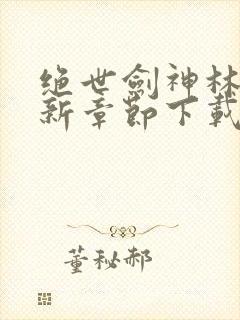 绝世劍神林
新章節下載
董秘郝